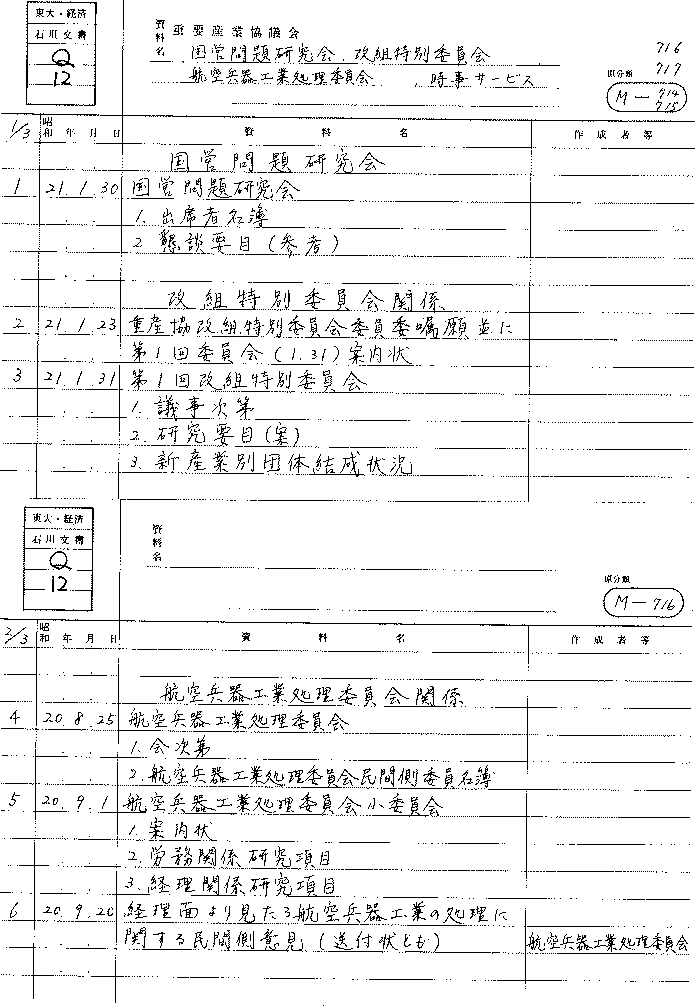 東大・経済
石川文書
Q
12
資料名
重要産業協議会
国営問題研究会、改組特別委員会
航空兵器工業処理委員会、時事サービス
716
717
原分類
M-714
715
1/3
昭和 年 月 日
資 料 名
作成者等
国営問題研究会
1 21.1.30 国営問題研究会
1. 出席者名簿
2 懇談要目(参考)
改組特別委員会関係
2 21.1.23 重産協改組特別委員会委員委嘱願並に
第1回委員会(1.31)案内状
3 21.1.31 第1回改組特別委員会
1. 議事次第
2. 研究要目(案)
3. 新産業別団体結成状況
東大・経済
石川文書
Q
12
資料名
原分類
M-716
2/3
昭和 年 月 日
資 料 名
作成者等
航空兵器工業処理委員会関係
4 20.8.25 航空兵器工業処理委員会
1. 会次第
2. 航空兵器工業処理委員会民間側委員名簿
5 20.9.1 航空兵器工業処理委員会小委員会
1. 案内状
2. 労務関係研究項目
3. 経理関係研究項目
6 20.9.20 経理面より見たる航空兵器工業の処理に
関する民間側意見(送付状とも)
航空兵器工業処理委員会